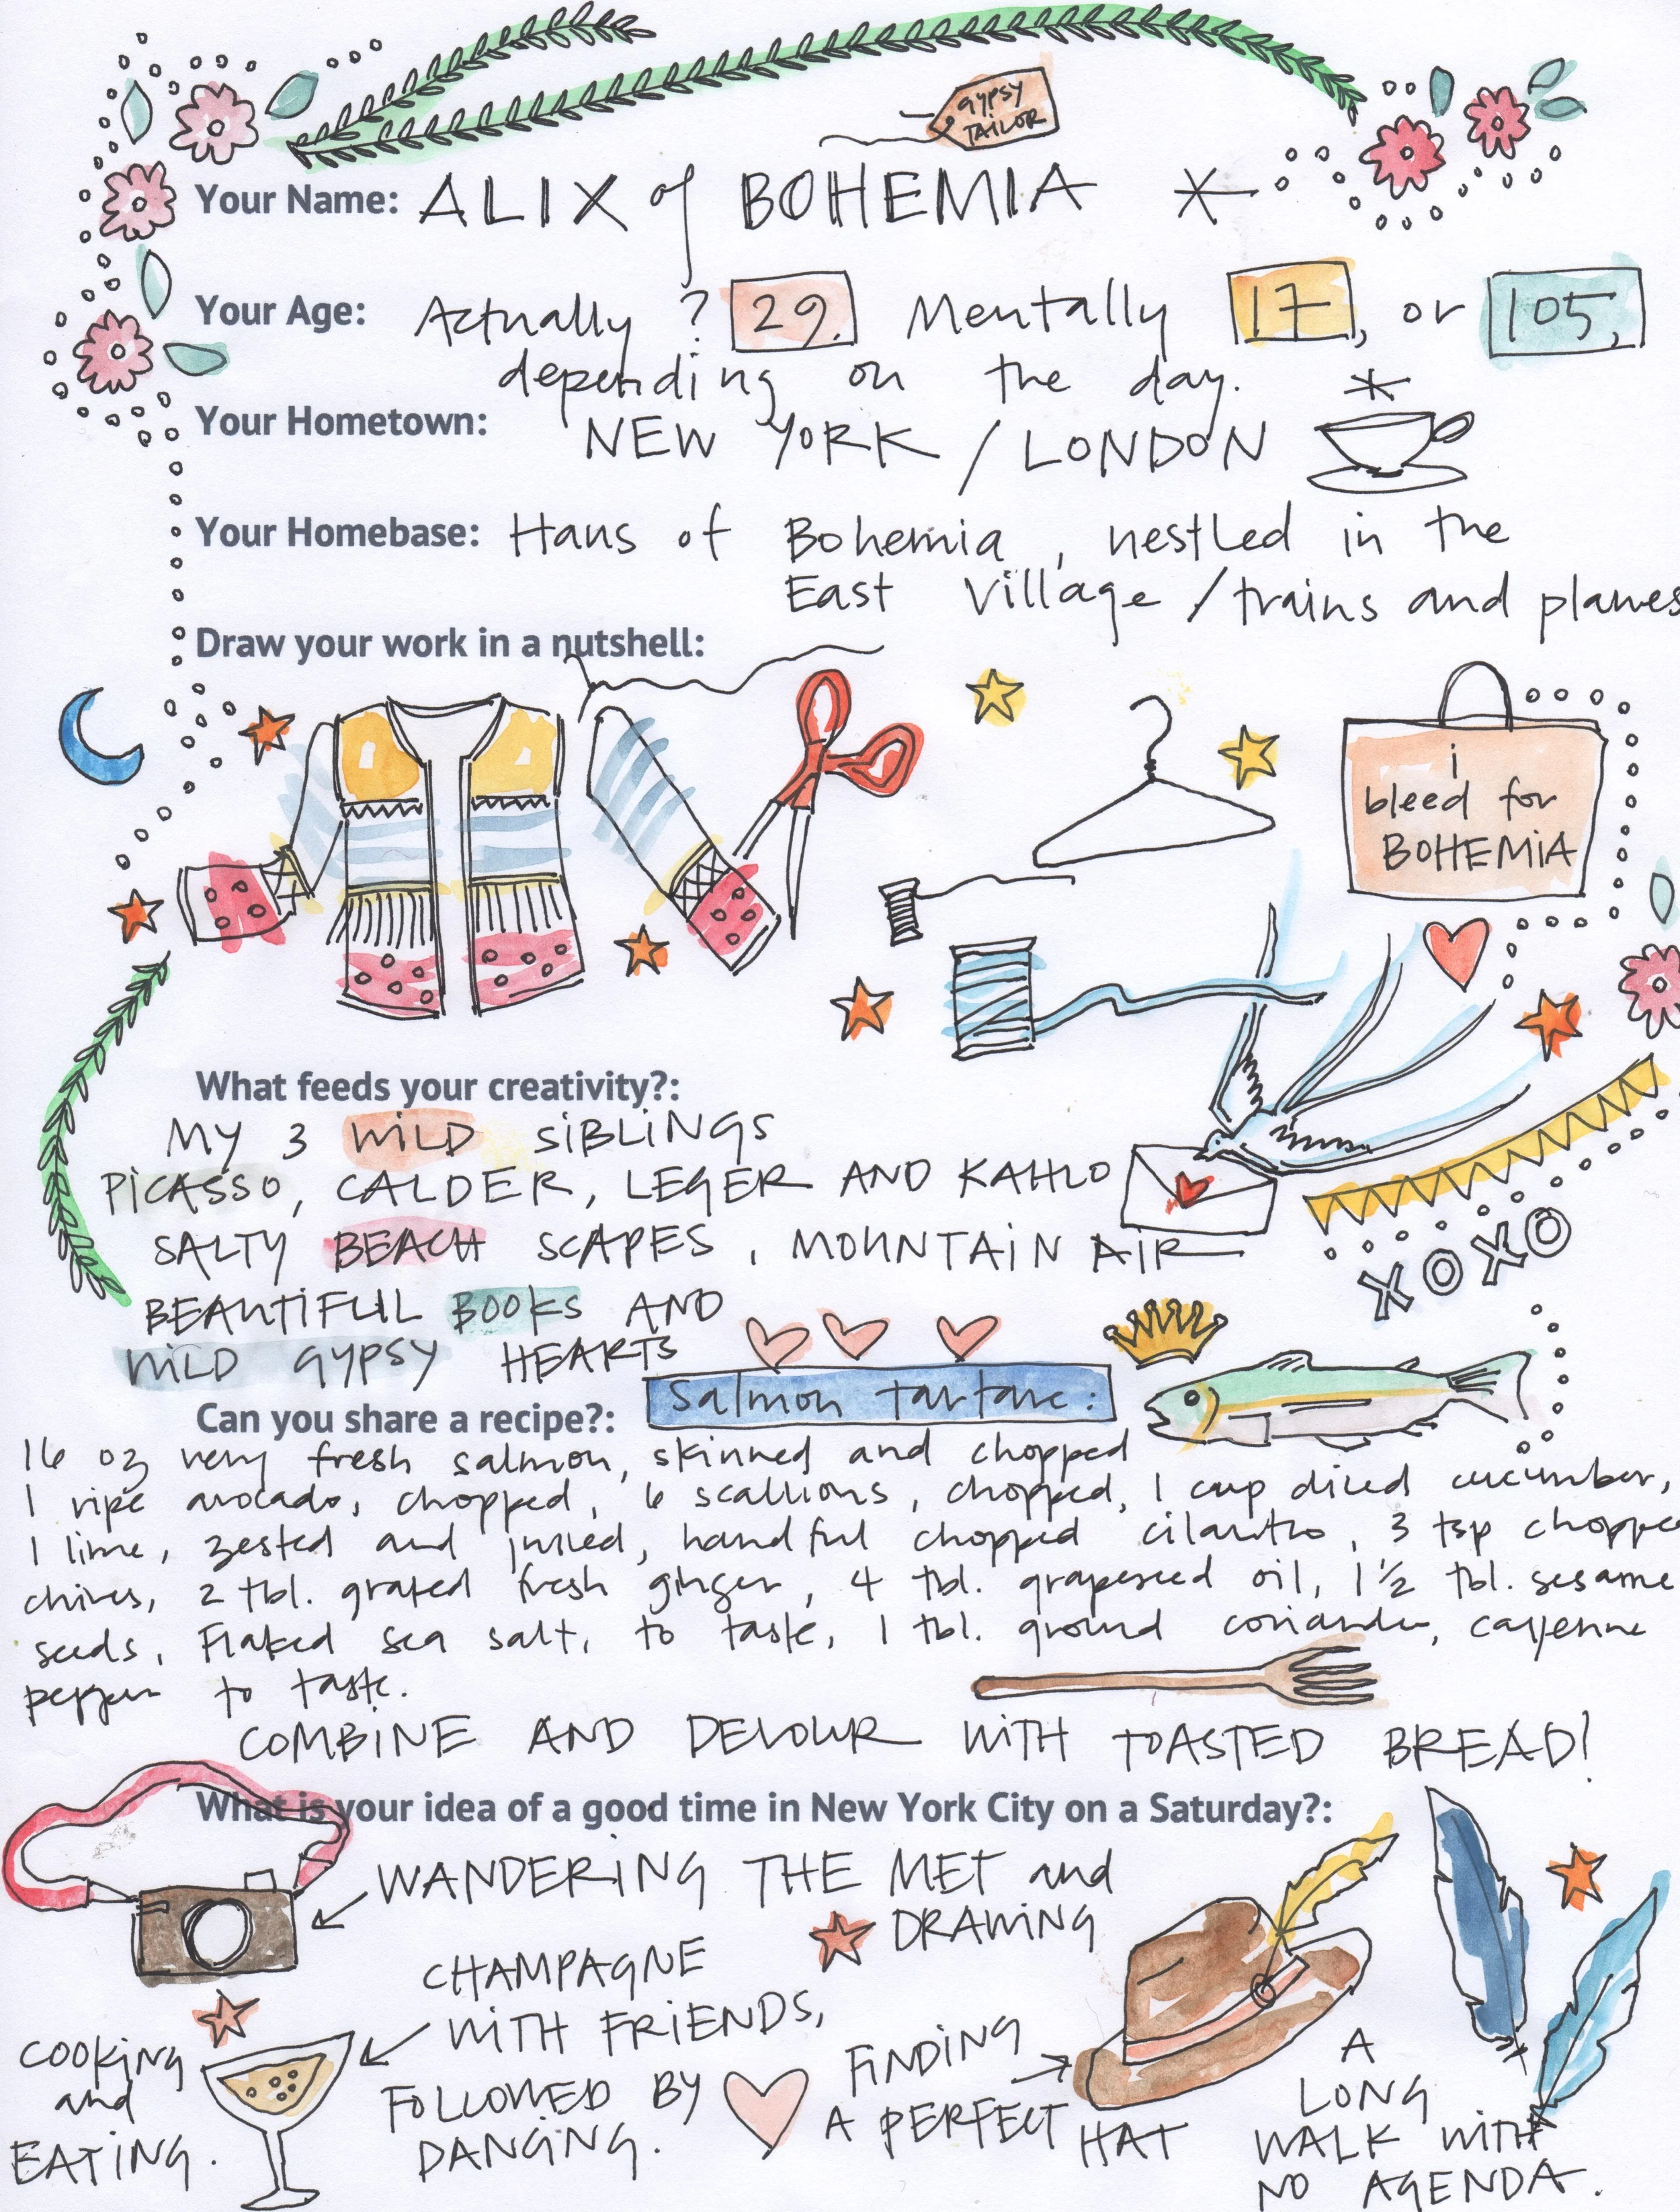 GYPSY
TAILOR
Your Name: ALIX of BOHEMIA
Your Age: Actually? 29. Mentally 17, or 105,
depending on the day.
Your Hometown: NEW YORK / LONDON
Your Homebase: Haus of Bohemia, nestled in the
East Village / trains and planes
Draw your work in a nutshell:
i
bleed for
BOHEMIA
What feeds your creativity?:
MY 3 WILD SIBLINGS
PICASSO, CALDER, LEGER AND KAHLO
SALTY BEACH SCAPES, MOUNTAIN AIR
XOXO
BEAUTIFUL BOOKS AND
WILD GYPSY HEARTS
Can you share a recipe?: Salmon tartare:
16 oz very fresh salmon, skinned and chopped
1 ripe avocado, chopped, 6 scallions, chopped, 1 cup diced cucumber,
1 lime, zested and juiced, handful chopped cilantro, 3 tsp chopped
chives, 2 tbl. grated fresh ginger, 4 tbl. grapeseed oil, 1 1/2 tbl. sesame
seeds, Flaked sea salt, to taste, 1 tbl. ground coriander, cayenne
pepper to taste.
COMBINE AND DEVOUR WITH TOASTED BREAD!
What is your idea of a good time in New York City on a Saturday?:
WANDERING THE MET and
DRAWING
CHAMPAGNE
WITH FRIENDS,
FOLLOWED BY
DANCING.
COOKING
and
EATING.
FINDING
A PERFECT HAT
A
LONG
WALK WITH
NO AGENDA.